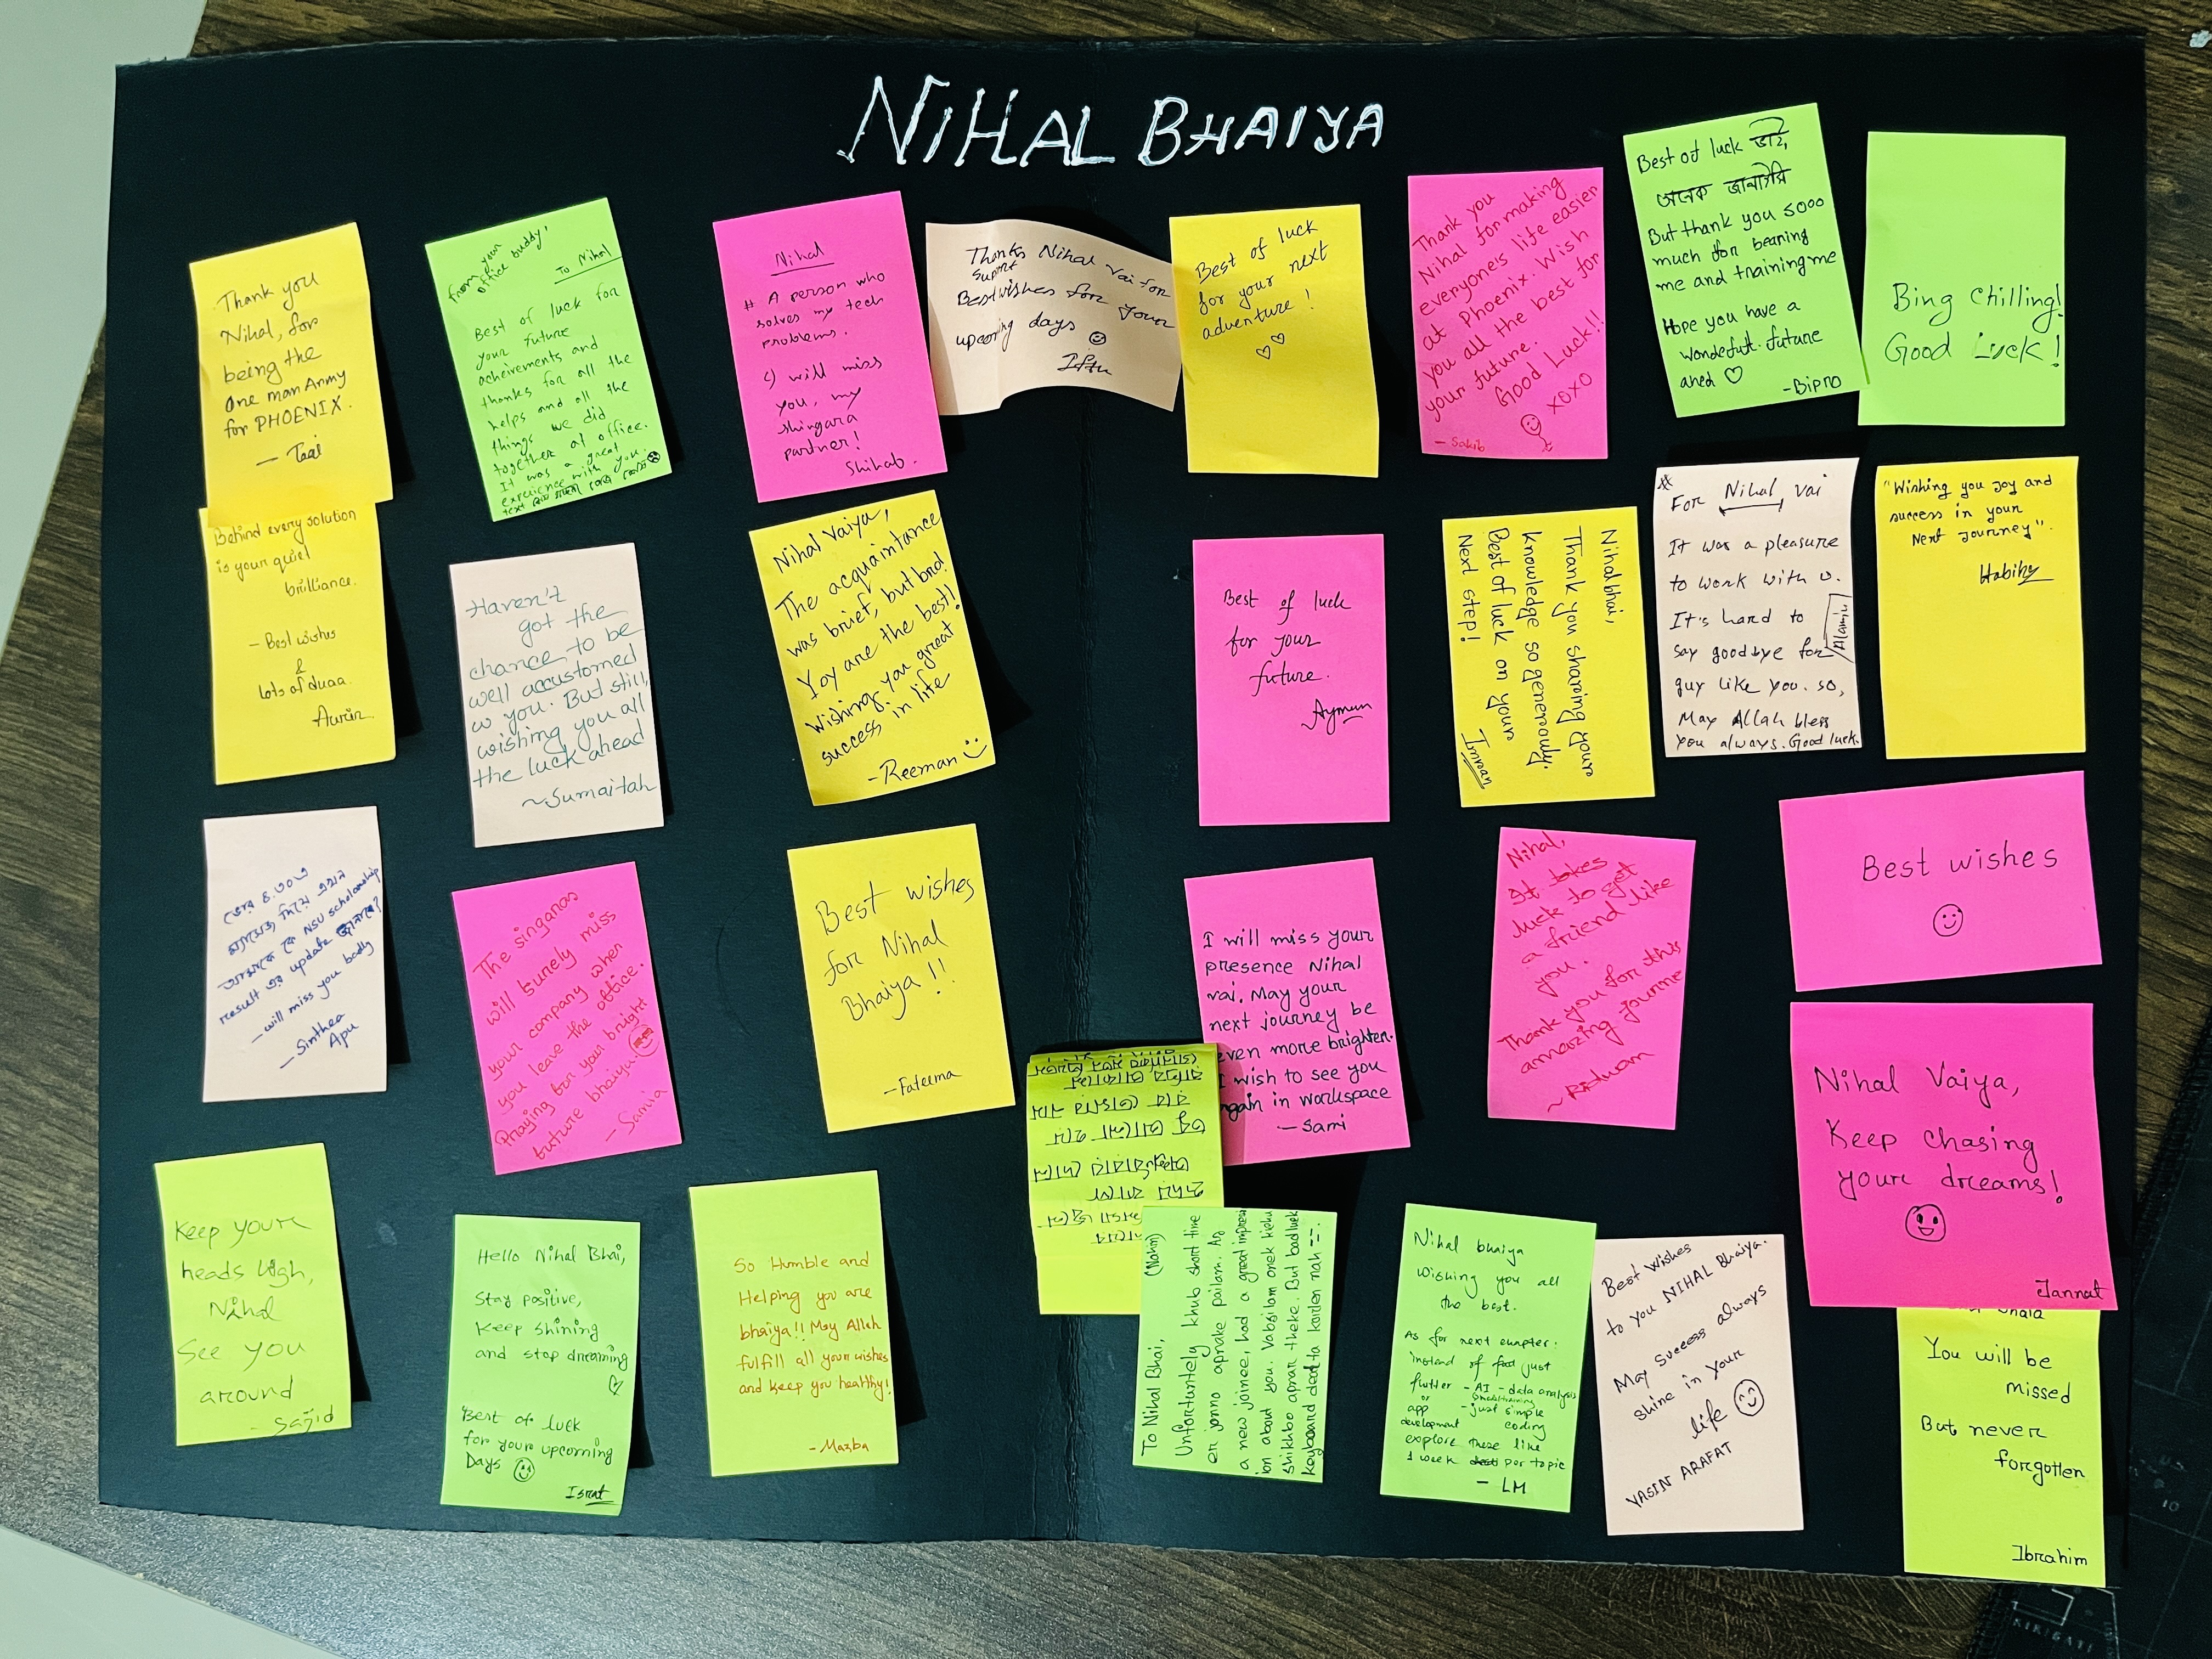 NIHAL BHAIYA
Thank you
Nihal, for
being the
One man Army
for PHOENIX.
from your
office buddy'
To Nihal
Best of luck for
your future
acheivements and
thanks for all the
helps and all the
things we did
together at office.
It was a great
experience with you.
text
Nihal
# A person who
solves my tech
problems.
will miss
you, my
shingara
partner!
Shihab.
Thanks Nihal vai for
support
Best wishes for your
upcoming days
Iftu
Best of luck
for your next
adventure!
Thank you
Nihal for making
everyone's life easier
at Phoenix. Wish
you all the best for
your future.
Good Luck!!
XOXO
- Sakib
Best of luck ভাই,
অনেক জ্বালাইছি
But thank you sooo
much for bearing
me and training me
Hope you have a
wondefull future
ahed
-Bipro
Bing chilling!
Good Luck!
Behind every solution
is your quiet
brilliance.
- Best wishes
&
lots of duaa.
Haven't
got the
chance to be
well accustomed
w you. But still,
wishing you all
the luck ahead
~Sumaitah
Nihal Vaiya,
The acquaintance
was brief, but brd
Yoy are the best!
Wishing you great
success in life
-Reeman
Best of luck
for your
future.
Aymun
Nihal bhai,
Thank you sharing your
knowledge so generously.
Best of luck on your
Next step!
Imran
For Nihal vai
It was a pleasure
to work with u.
It's hard to
say goodbye for
guy like you. so,
May Allah bless
you always. Good luck.
Alamin
"Wishing you joy and
success in your
Next Journey".
ভোর ৪.৩০ এ
কে NSU scholarship
result এর update
- will miss you badly
- Sinthea
Apu
The singaras
will surely miss
your company when
you leave the office.
Praying for your bright
future bhaiya.
Best wishes
for Nihal
Bhaiya!!
-Fateema
I will miss your
presence Nihal
vai. May your
next journey be
even more brighter.
I wish to see you
again in workspace
- Sami
Nihal,
It takes
luck to get
a friend like
you.
Thank you for this
amazing journe
~ Ridwan
Best wishes
Nihal Vaiya,
Keep chasing
your dreams!
Jannat
Keep your
heads high,
Nihal
See you
around
- Sajid
Hello Nihal Bhai,
Stay positive,
Keep shining
and stop dreaming
Best of luck
for your upcoming
Days
Israt
So Humble and
Helping you are
bhaiya!! May Allah
fulfill all your wishes
and keep you healthy!
- Maisha
To Nihal Bhai, (Nahin)
Unfortantely khub short time
er jonno apnake pailam. As
a new joinee, had a great impressi
on about you. Vabsilam onek kichu
shikhbo apnar theke. But bad luck
keyboard deal ta korlen nah --
Nihal bhaiya
wishing you all
the best.
As for next chapter:
instead of just
flutter - AI - data analysis
or
app - just simple
development coding
explore these like
1 week per topic
- LM
Best Wishes
to you NIHAL Bhaiya.
May success always
shine in your
life
YASIN ARAFAT
You will be
missed
But never
forgotten
Ibrahim